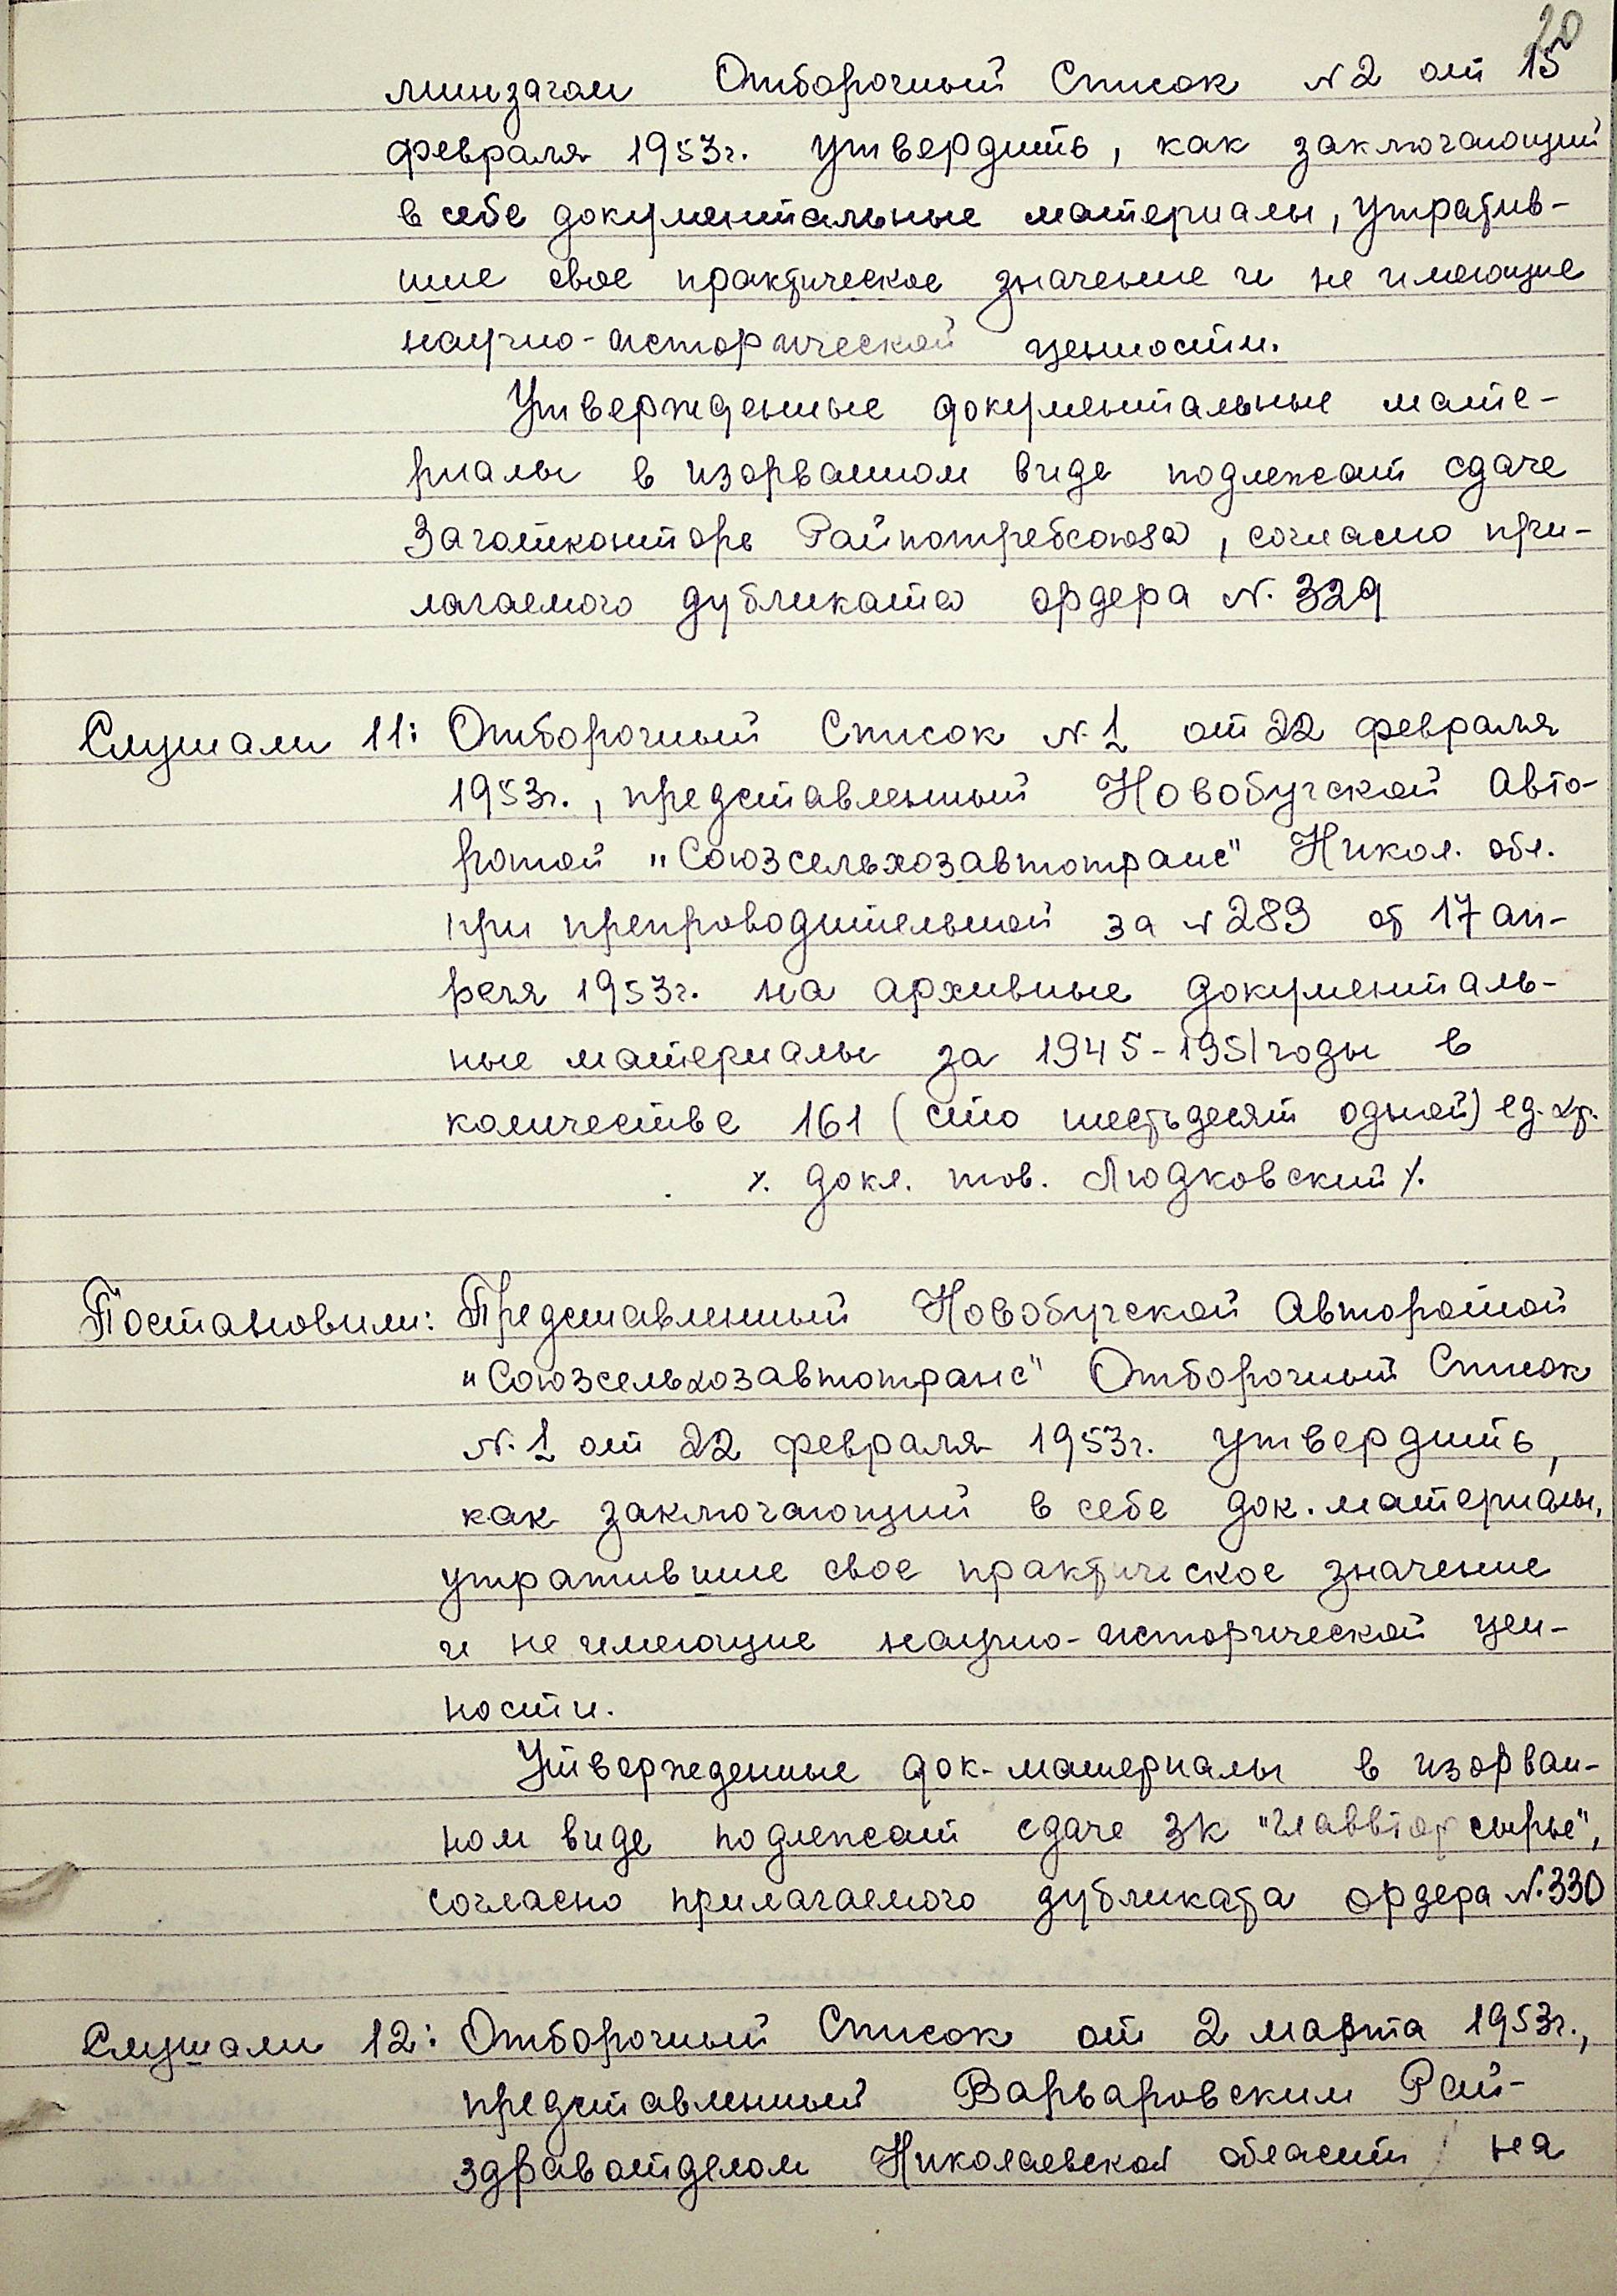 20
минзагом Отборочный Список №2 от 15
февраля 1953г. утвердить, как заключающий
в себе документальные материалы, утратив-
шие свое практическое значение и не имеющие
научно-исторической ценности.
Утвержденные документальные мате-
риалы в изорванном виде подлежат сдаче
Заготконторе Райпотребсоюза, согласно при-
лагаемого дубликата ордера №. 329
Слушали 11: Отборочный Список №.1 от 22 февраля
1953г., представленный Новобугской Авто-
ротой "Союзсельхозавтотранс" Никол. обл.
при препроводительной за №289 от 17 ап-
реля 1953г. на архивные документаль-
ные материалы за 1945-1951 годы в
количестве 161 (сто шестьдесят одной) ед.хр.
⁒. докл. тов. Людковский ⁒.
Постановили: Представленный Новобугской Авторотой
"Союзсельхозавтотранс" Отборочный Список
№.1 от 22 февраля 1953г. утвердить,
как заключающий в себе док. материалы,
утратившие свое практическое значение
и не имеющие научно-исторической цен-
ности.
Утвержденные док-материалы в изорван-
ном виде подлежат сдаче ЗК "Главвторсырье",
согласно прилагаемого дубликата ордера №.330
Слушали 12: Отборочный Список от 2 марта 1953г.,
представленный Варваровским Рай-
здравотделом Николаевской области на